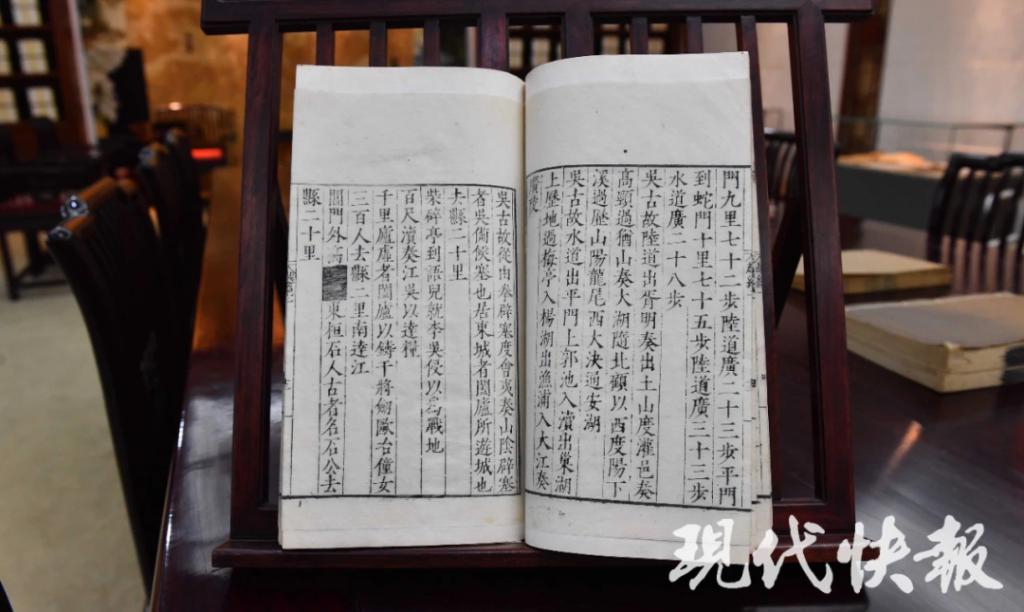 門九里七十二步陸道廣二十三步平門
到蛇門十里七十五步陸道廣三十三步
水道廣二十八步
吳古故陸道出胥明奏出土山度灌邑奏
高頸過猶山奏太湖隨北顧以西度陽下
溪過歷山陽龍尾西大決過安湖
吳古故水道出平門上郭池入瀆出巢湖
上歷地過梅亭入楊湖出漁浦入大江奏
廣陵
吳古故從由拳辟塞度會夷奏山陰辟塞
者吳備候塞也居東城者闔廬所遊城也
去縣二十里
柴碎亭到語兒就李吳侵以為戰地
百尺瀆奏江吳以達糧
千里廬虛者闔廬以鑄干將劒歐冶僮女
三百人去縣二里南達江
閶門外
東桓石人古者名石公去
縣二十里
現代快報